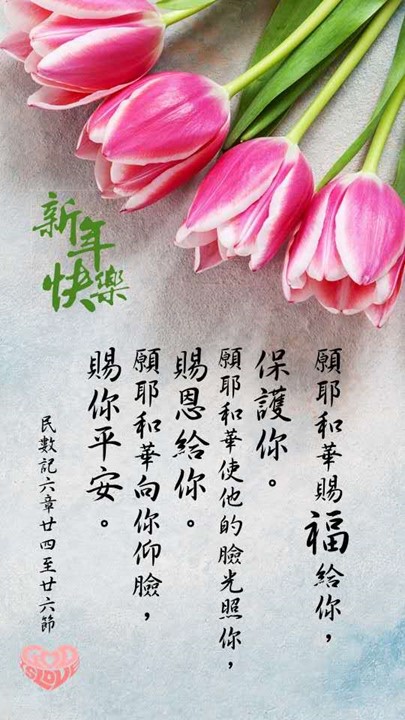 新年
快樂
願耶和華賜福給你，
保護你。
願耶和華使他的臉光照你，
賜恩給你。
願耶和華向你仰臉，
賜你平安。
民數記六章廿四至廿六節
GOD
IS LOVE